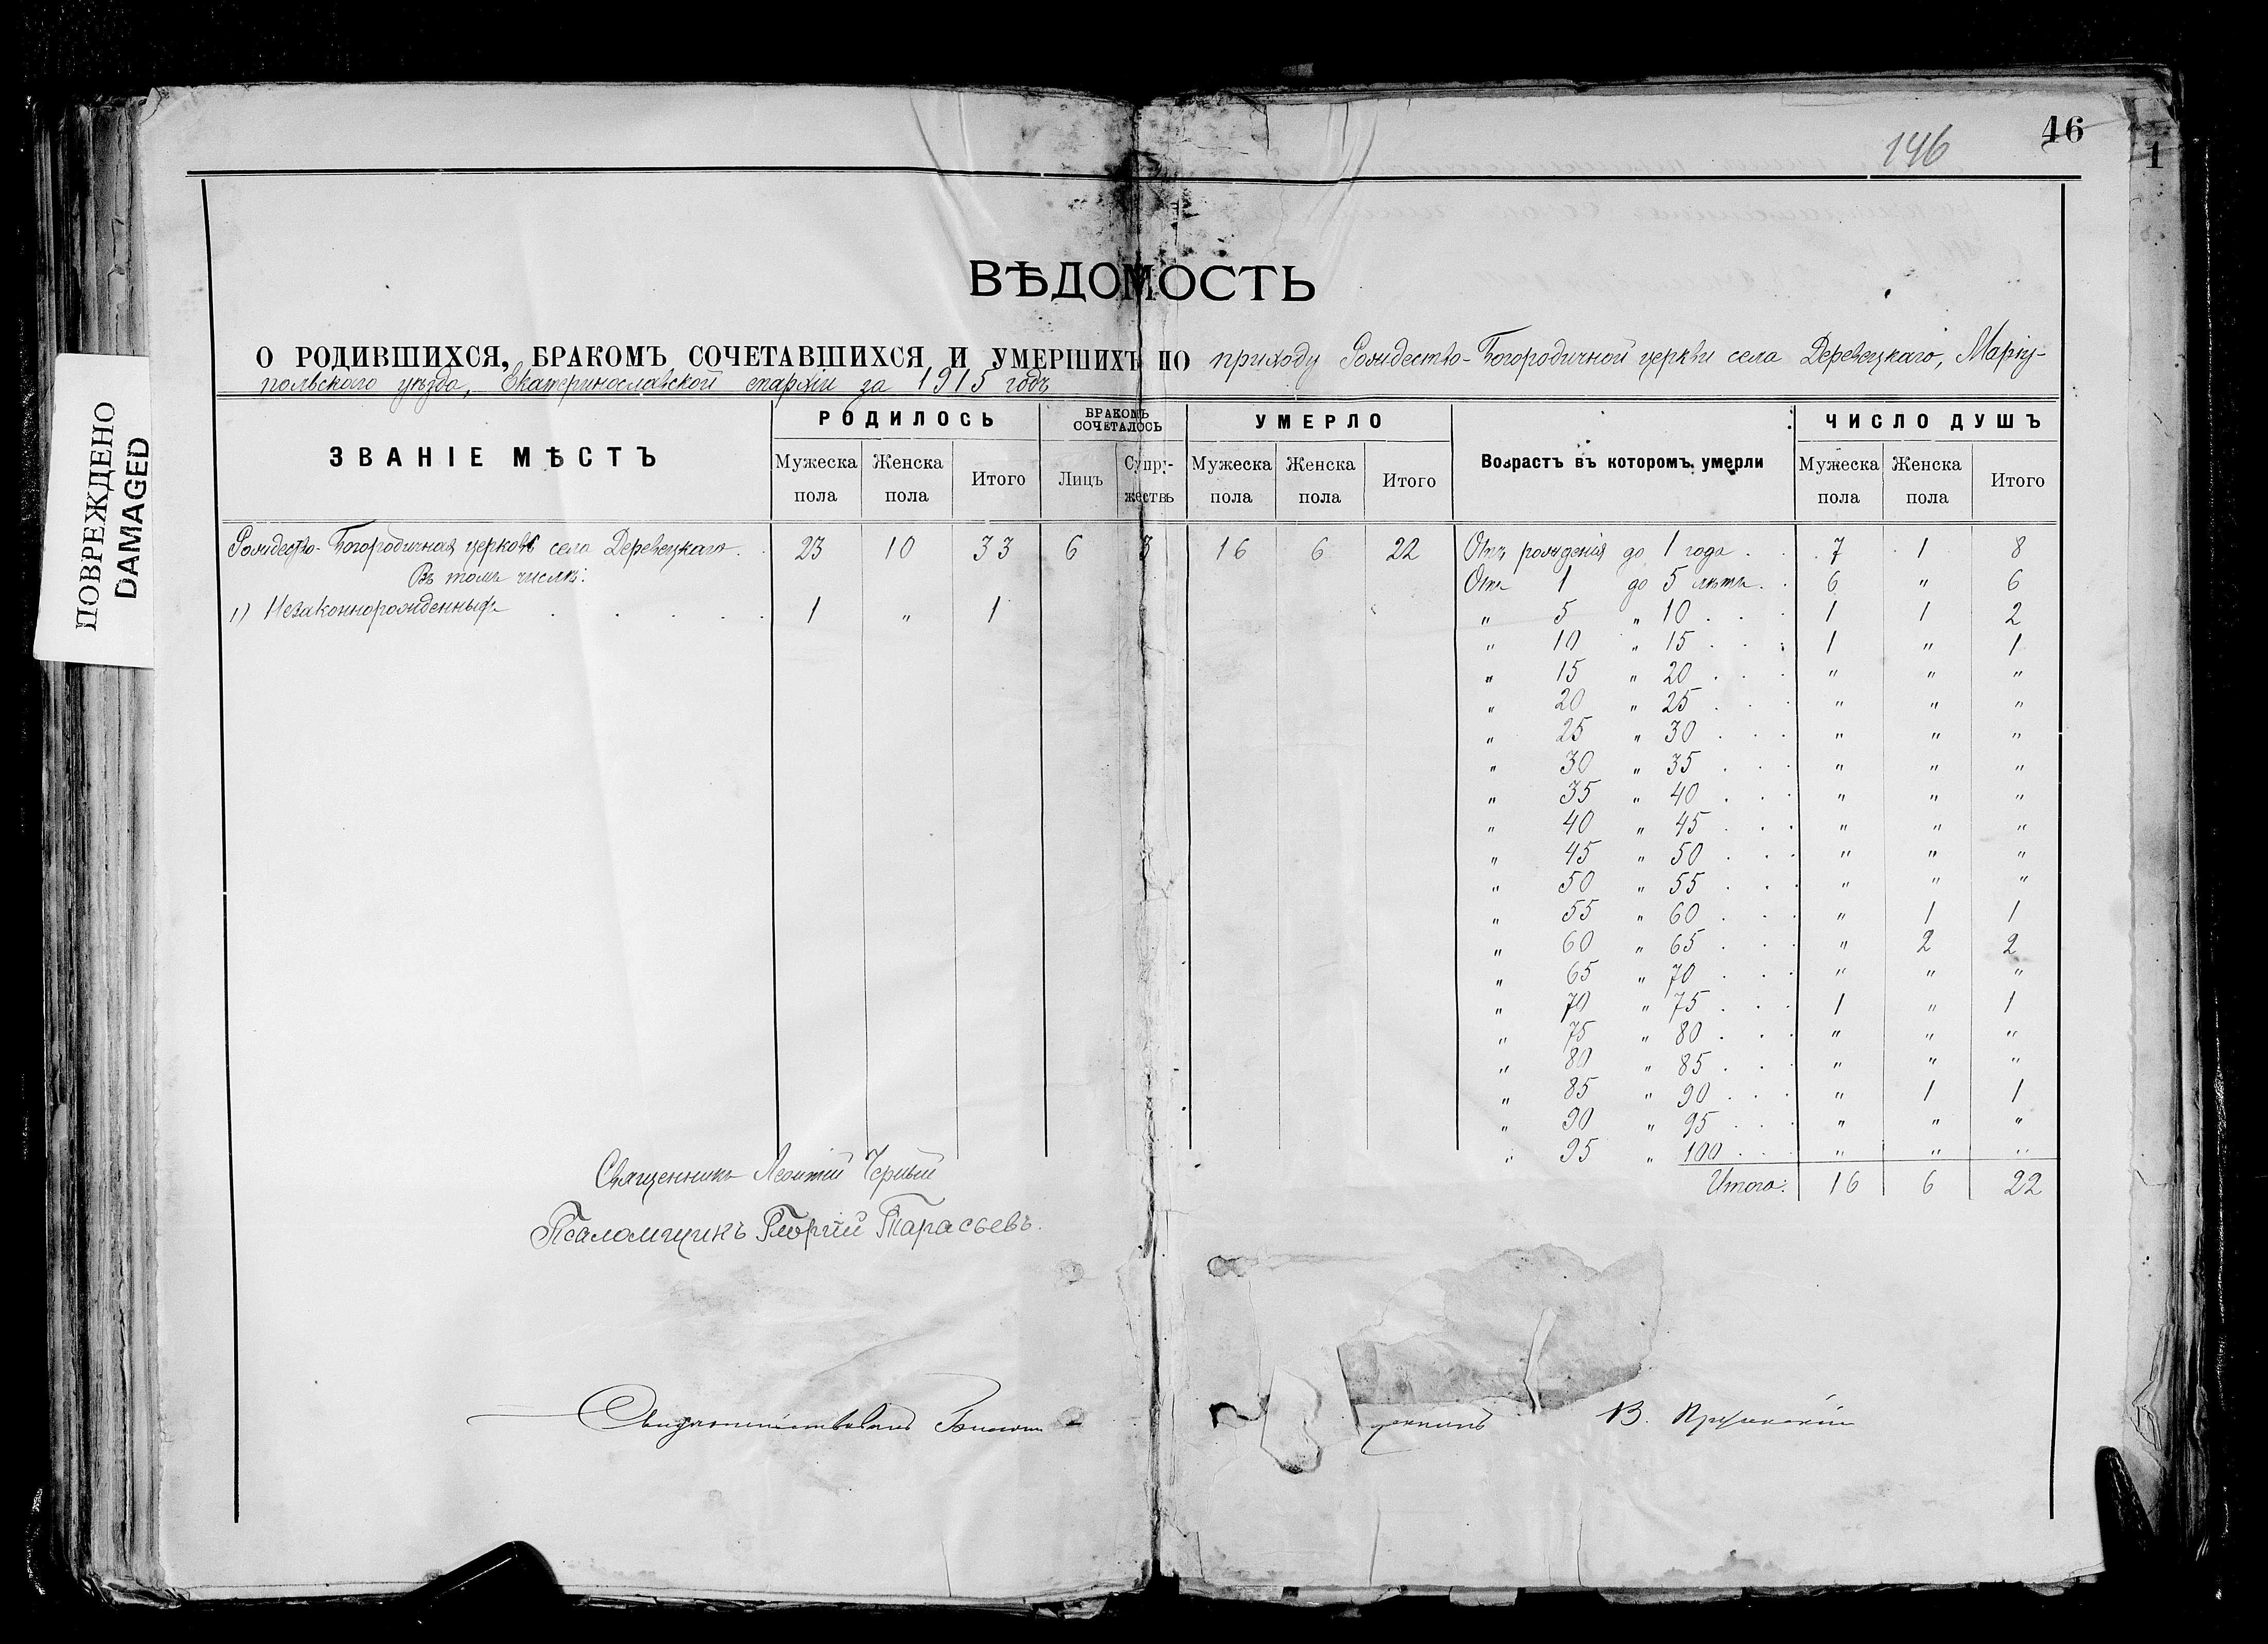 46
146
1
ВѢДОМОСТЬ
О РОДИВШИХСЯ, БРАКОМЪ СОЧЕТАВШИХСЯ И УМЕРШИХЪ ПО приходу Рождество-Богородичной церкви села Деревецкаго, Маріу-
польскаго уѣзда, Екатеринославской епархіи за 1915 годъ
ЗВАНІЕ МѢСТЪ РОДИЛОСЬ БРАКОМЪ СОЧЕТАЛОСЬ УМЕРЛО Возрастъ въ которомъ умерли ЧИСЛО ДУШЪ
Мужеска пола Женска пола Итого Лицъ Супру-жествъ Мужеска пола Женска пола Итого Мужеска пола Женска пола Итого
Рождество-Богородичная церковь села Деревецкаго. 23 10 33 6 3 16 6 22 Отъ рожденія до 1 года . . 7 1 8
Въ томъ числѣ: Отъ 1 до 5 лѣтъ . . 6 " 6
1) Незаконнорожденныхъ . . . . . 1 " 1 " 5 " 10 . . . 1 1 2
" 10 " 15 . . . 1 " 1
" 15 " 20 . . . " " "
" 20 " 25 . . . " " "
" 25 " 30 . . . " " "
" 30 " 35 . . . " " "
" 35 " 40 . . . " " "
" 40 " 45 . . . " " "
" 45 " 50 . . . " " "
" 50 " 55 . . . " " "
" 55 " 60 . . . " 1 1
" 60 " 65 . . . " 2 2
" 65 " 70 . . . " " "
" 70 " 75 . . . 1 " 1
" 75 " 80 . . . " " "
" 80 " 85 . . . " " "
" 85 " 90 . . . " 1 1
" 90 " 95 . . . " " "
" 95 " 100 . . . " " "
Итого: 16 6 22
Священникъ Леонтій Черный
Псаломщикъ Георгій Тарасьевъ.
Свидѣтельствовалъ В.
ПОВРЕЖДЕНО
DAMAGED